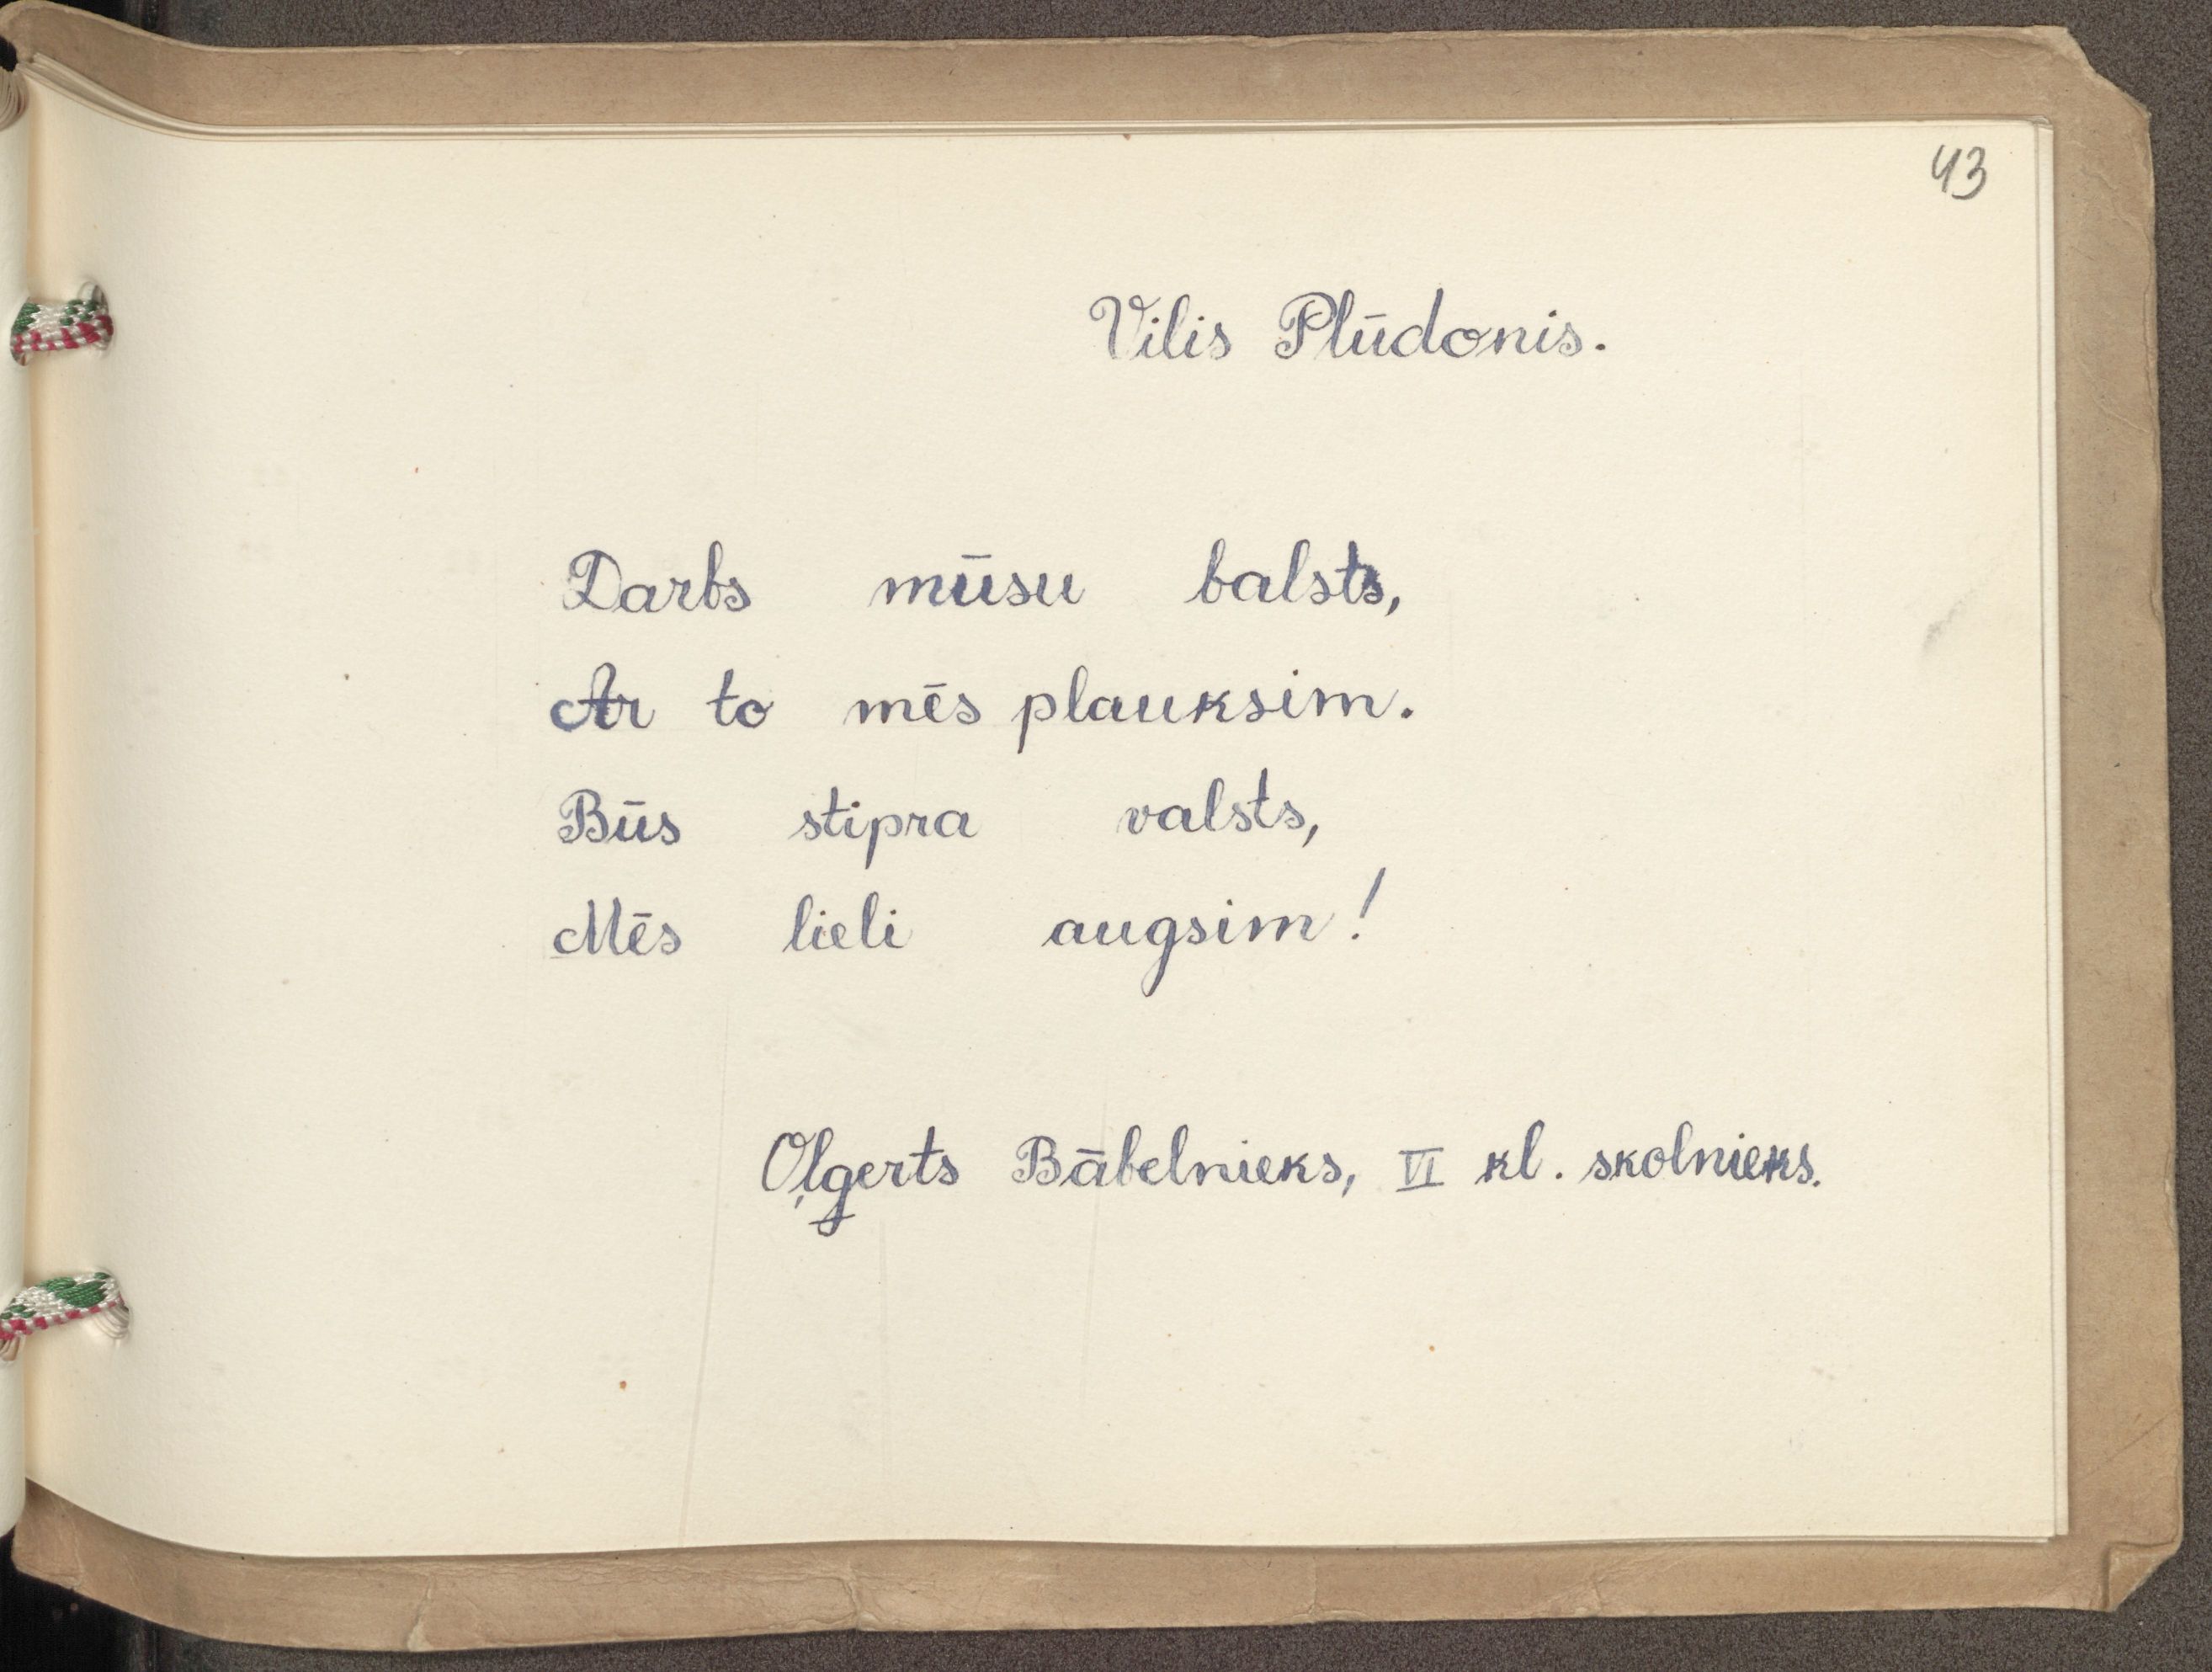 43
Vilis Plūdonis.
Darbs mūsu balsts,
Ar to mēs plauksim.
Būs stipra valsts,
Mēs lieli augsim!
Oļgerts Bābelnieks, VI kl. skolnieks.